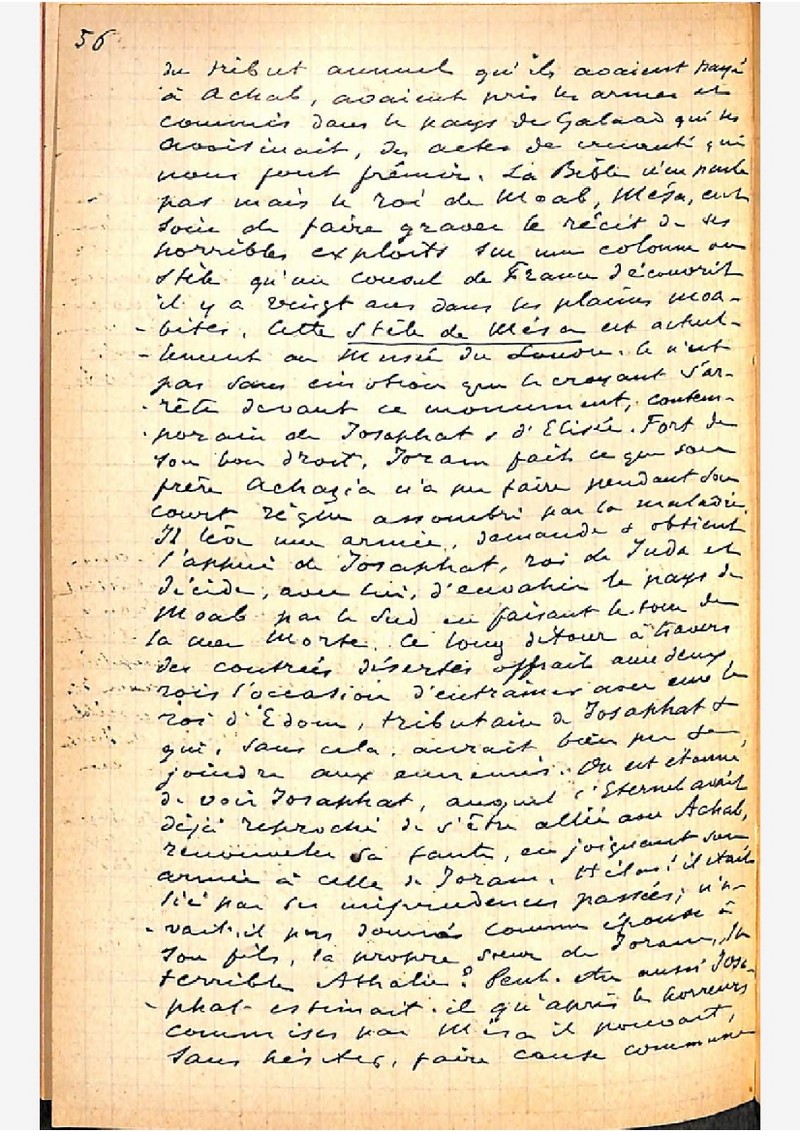 56
du tribut annuel qu'ils avaient payé
à Achab, avaient pris les armes et
commis dans le pays de Galaad qui les
avoisinait, des actes de cruauté qui
nous font frémir. La Bible n'en parle
pas mais le roi de Moab, Mésa, eut
soin de faire graver le récit de ses
horribles exploits sur une colonne ou
stèle qu'un consul de France découvrit
il y a vingt ans dans les plaines moa-
-bites. Cette Stèle de Mésa est actuel-
-lement au Musée du Louvre. Ce n'est
pas sans émotion que le croyant s'ar-
-rête devant ce monument, contem-
-porain de Josaphat & d'Elisée. Fort de
son bon droit, Joram fait ce que son
frère Achazia n'a pu faire pendant son
court règne assombri par la maladie.
Il lève une armée, demande & obtient
l'appui de Josaphat, roi de Juda et
décide, avec lui, d'envahir le pays de
Moab par le Sud en faisant le tour de
la mer Morte. Ce long détour à travers
des contrées désertes offrait aux deux
rois l'occasion d'entraîner avec eux le
roi d'Edom, tributaire de Josaphat &
qui, sans cela, aurait bien pu se
joindre aux ennemis. On est étonné,
de voir Josaphat, auquel l'Eternel avait
déjà reproché de s'être allié avec Achab,
renouveler sa faute, en joignant son
armée à celle de Joram. Hélas! il était
lié par ses imprudences passées; n'a-
-vait-il pas donné comme épouse à
son fils, la propre sœur de Joram, la
terrible Athalie? Peut-être aussi Josa-
-phat estimait-il qu'après les horreurs
commises par Mésa il pouvait,
sans hésiter, faire cause commune